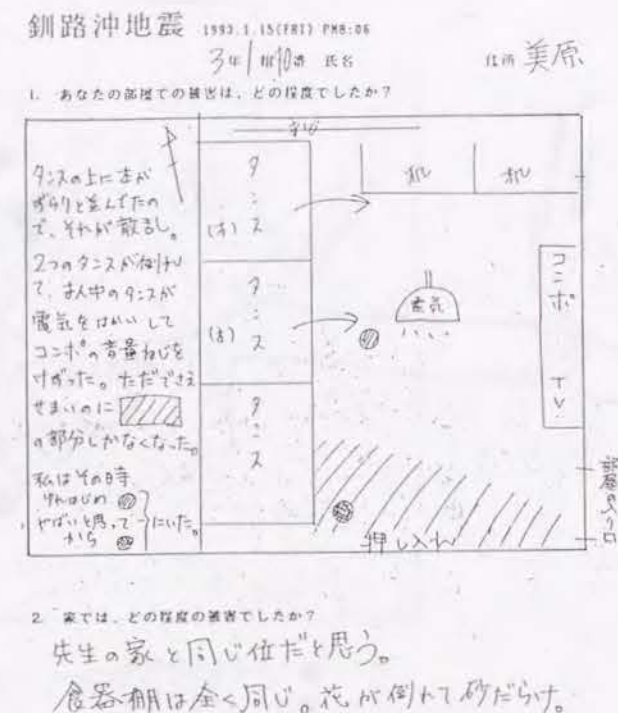 釧路沖地震 1993.1.15(FRI) PM8:06
3年1組10番 氏名 住所 美原
1. あなたの部屋での被害は、どの程度でしたか?
タンスの上に本が
ずらりと並んでたの
で、それが散乱し。
2つのタンスが倒れ
て、まん中のタンスが
電気をはかいして
コンポの音量ねじを
けずった。ただでさえ
せまいのに
の部分しかなくなった。
私はその時
やばいと思って
から
にいた。
まど
タンス
(本)
タンス
(本)
タンス
机 机
電気
コンポ TV
部屋の入り口
押し入れ
2 家では、どの程度の被害でしたか?
先生の家と同じ位だと思う。
食器棚は全く同じ。花が倒れて砂だらけ。